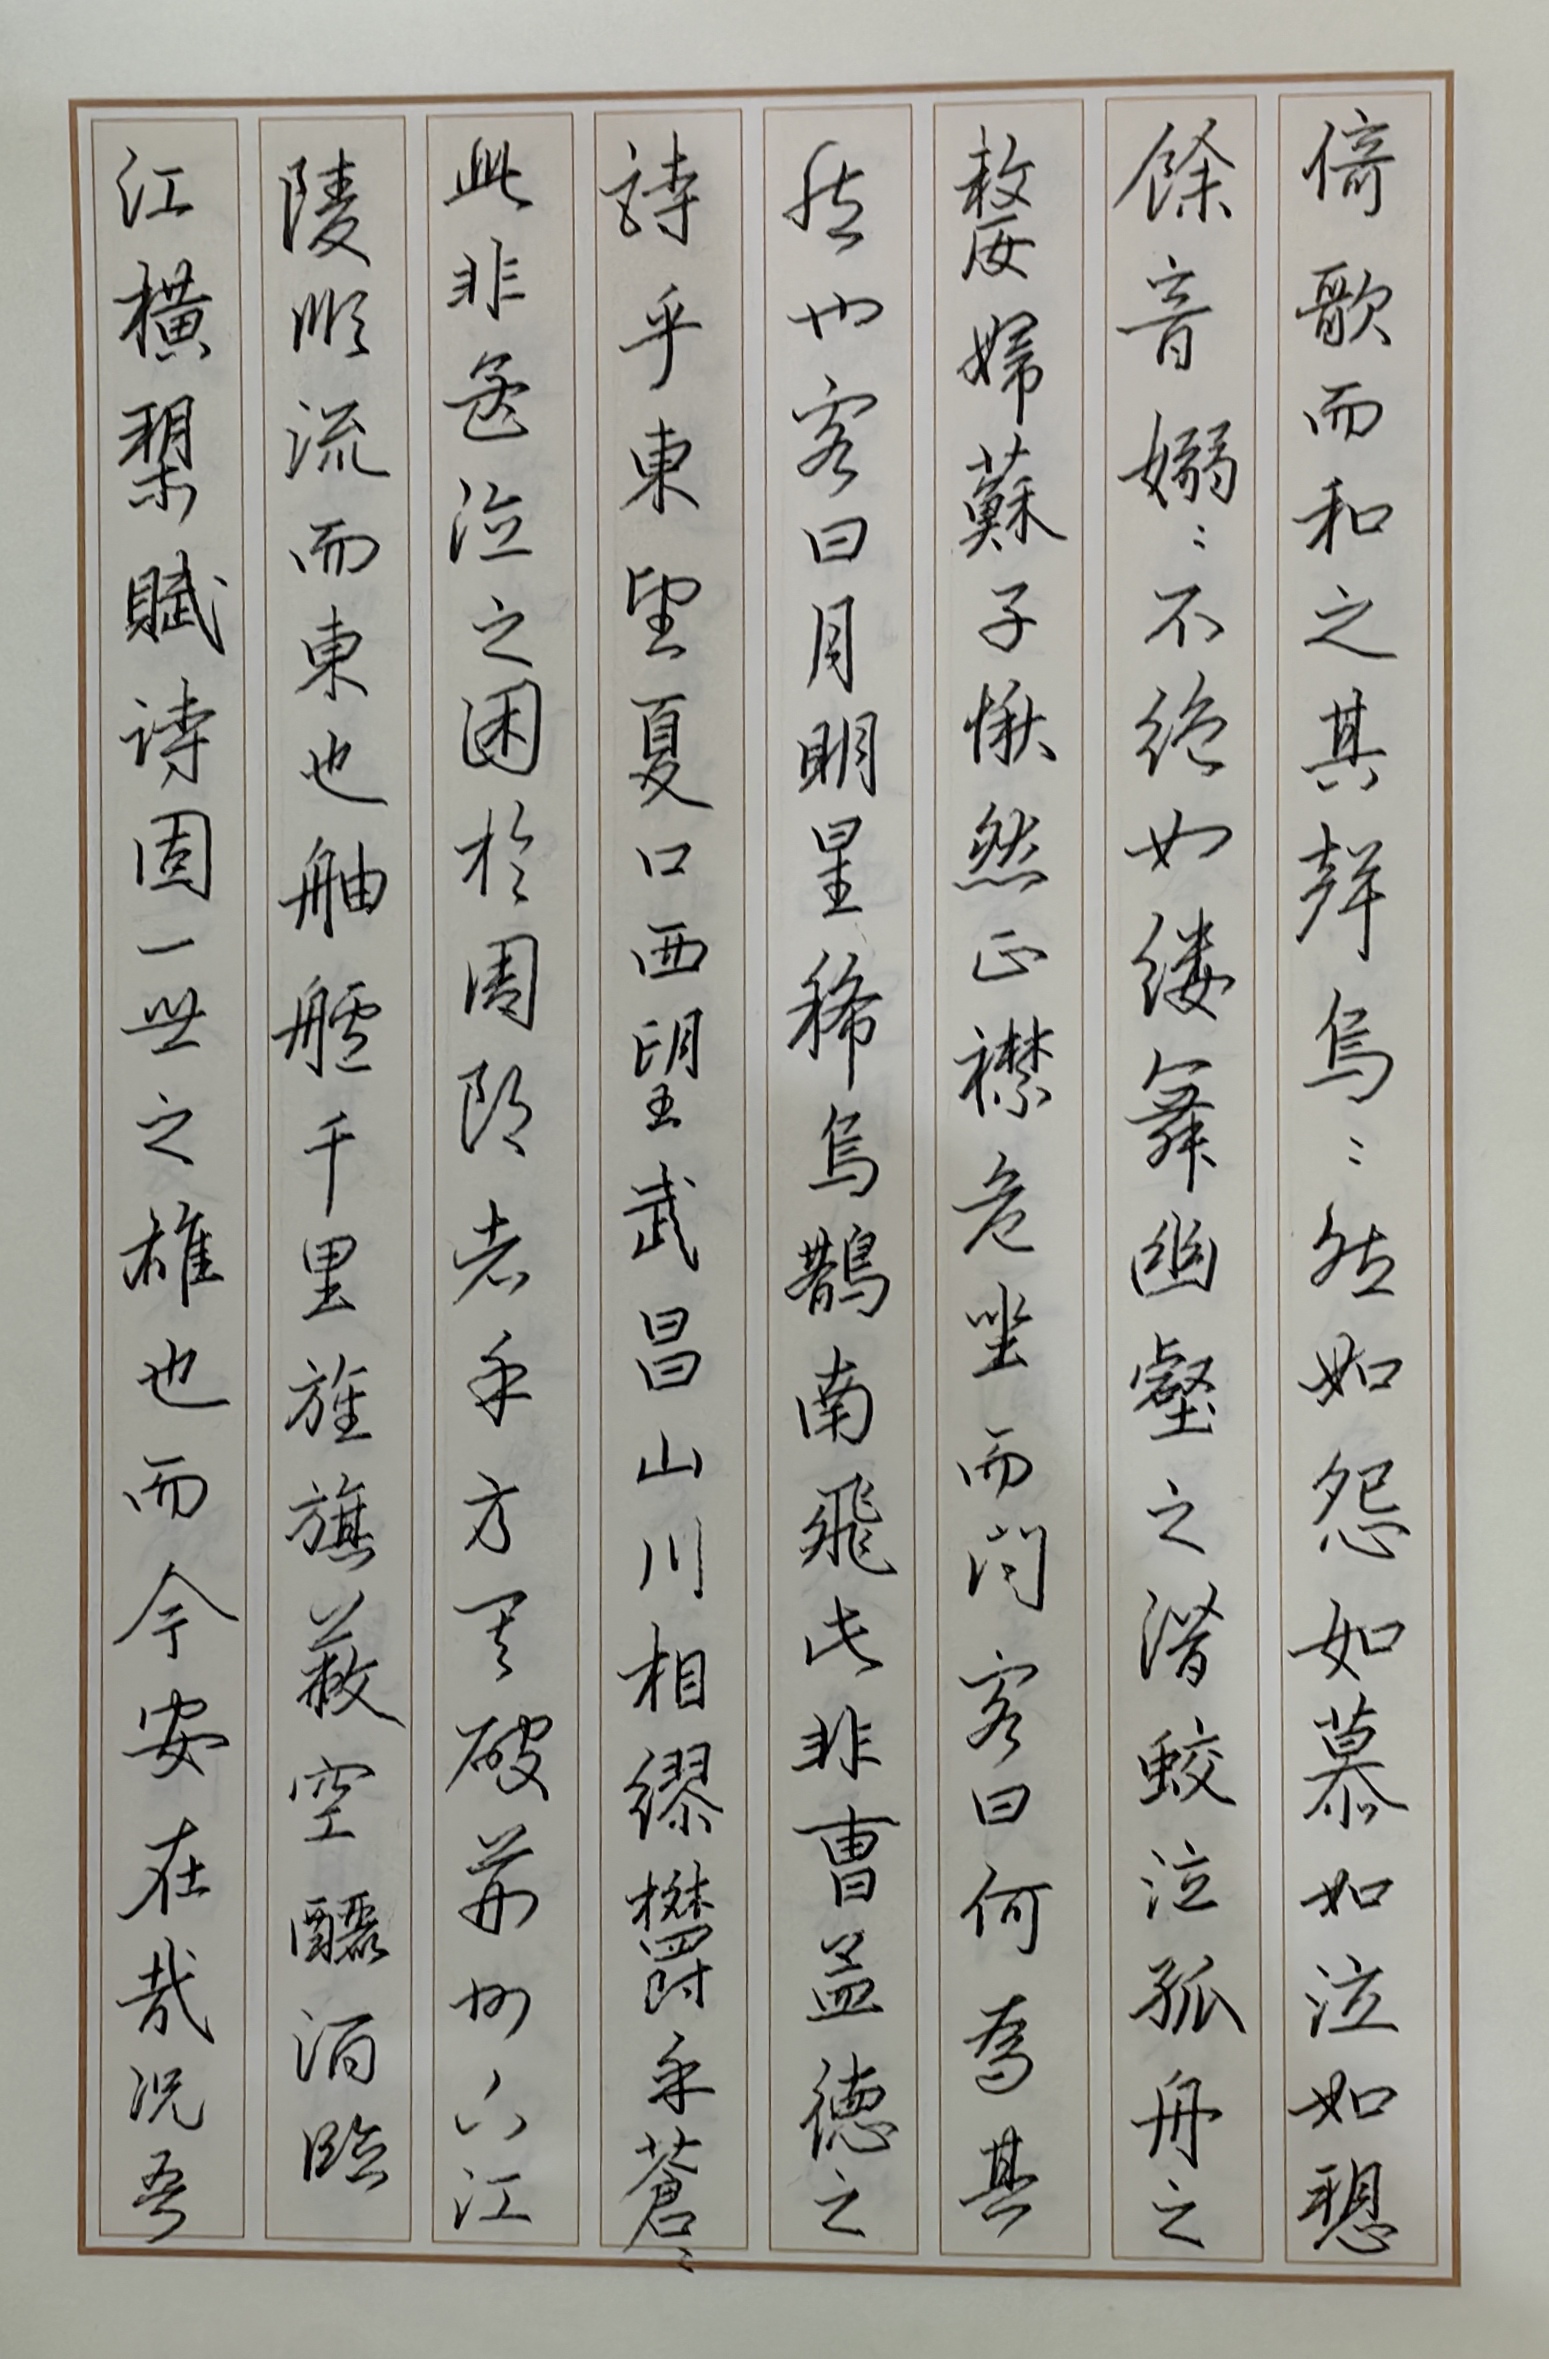 倚歌而和之其聲烏〻然如怨如慕如泣如愬
餘音嫋〻不絕如縷舞幽壑之潛蛟泣孤舟之
嫠婦蘇子愀然正襟危坐而問客曰何為其
然也客曰月明星稀烏鵲南飛此非曹孟德之
詩乎東望夏口西望武昌山川相繆鬱乎蒼〻
此非孟德之困於周郎者乎方其破荊州下江
陵順流而東也舳艫千里旌旗蔽空釃酒臨
江橫槊賦詩固一世之雄也而今安在哉況吾